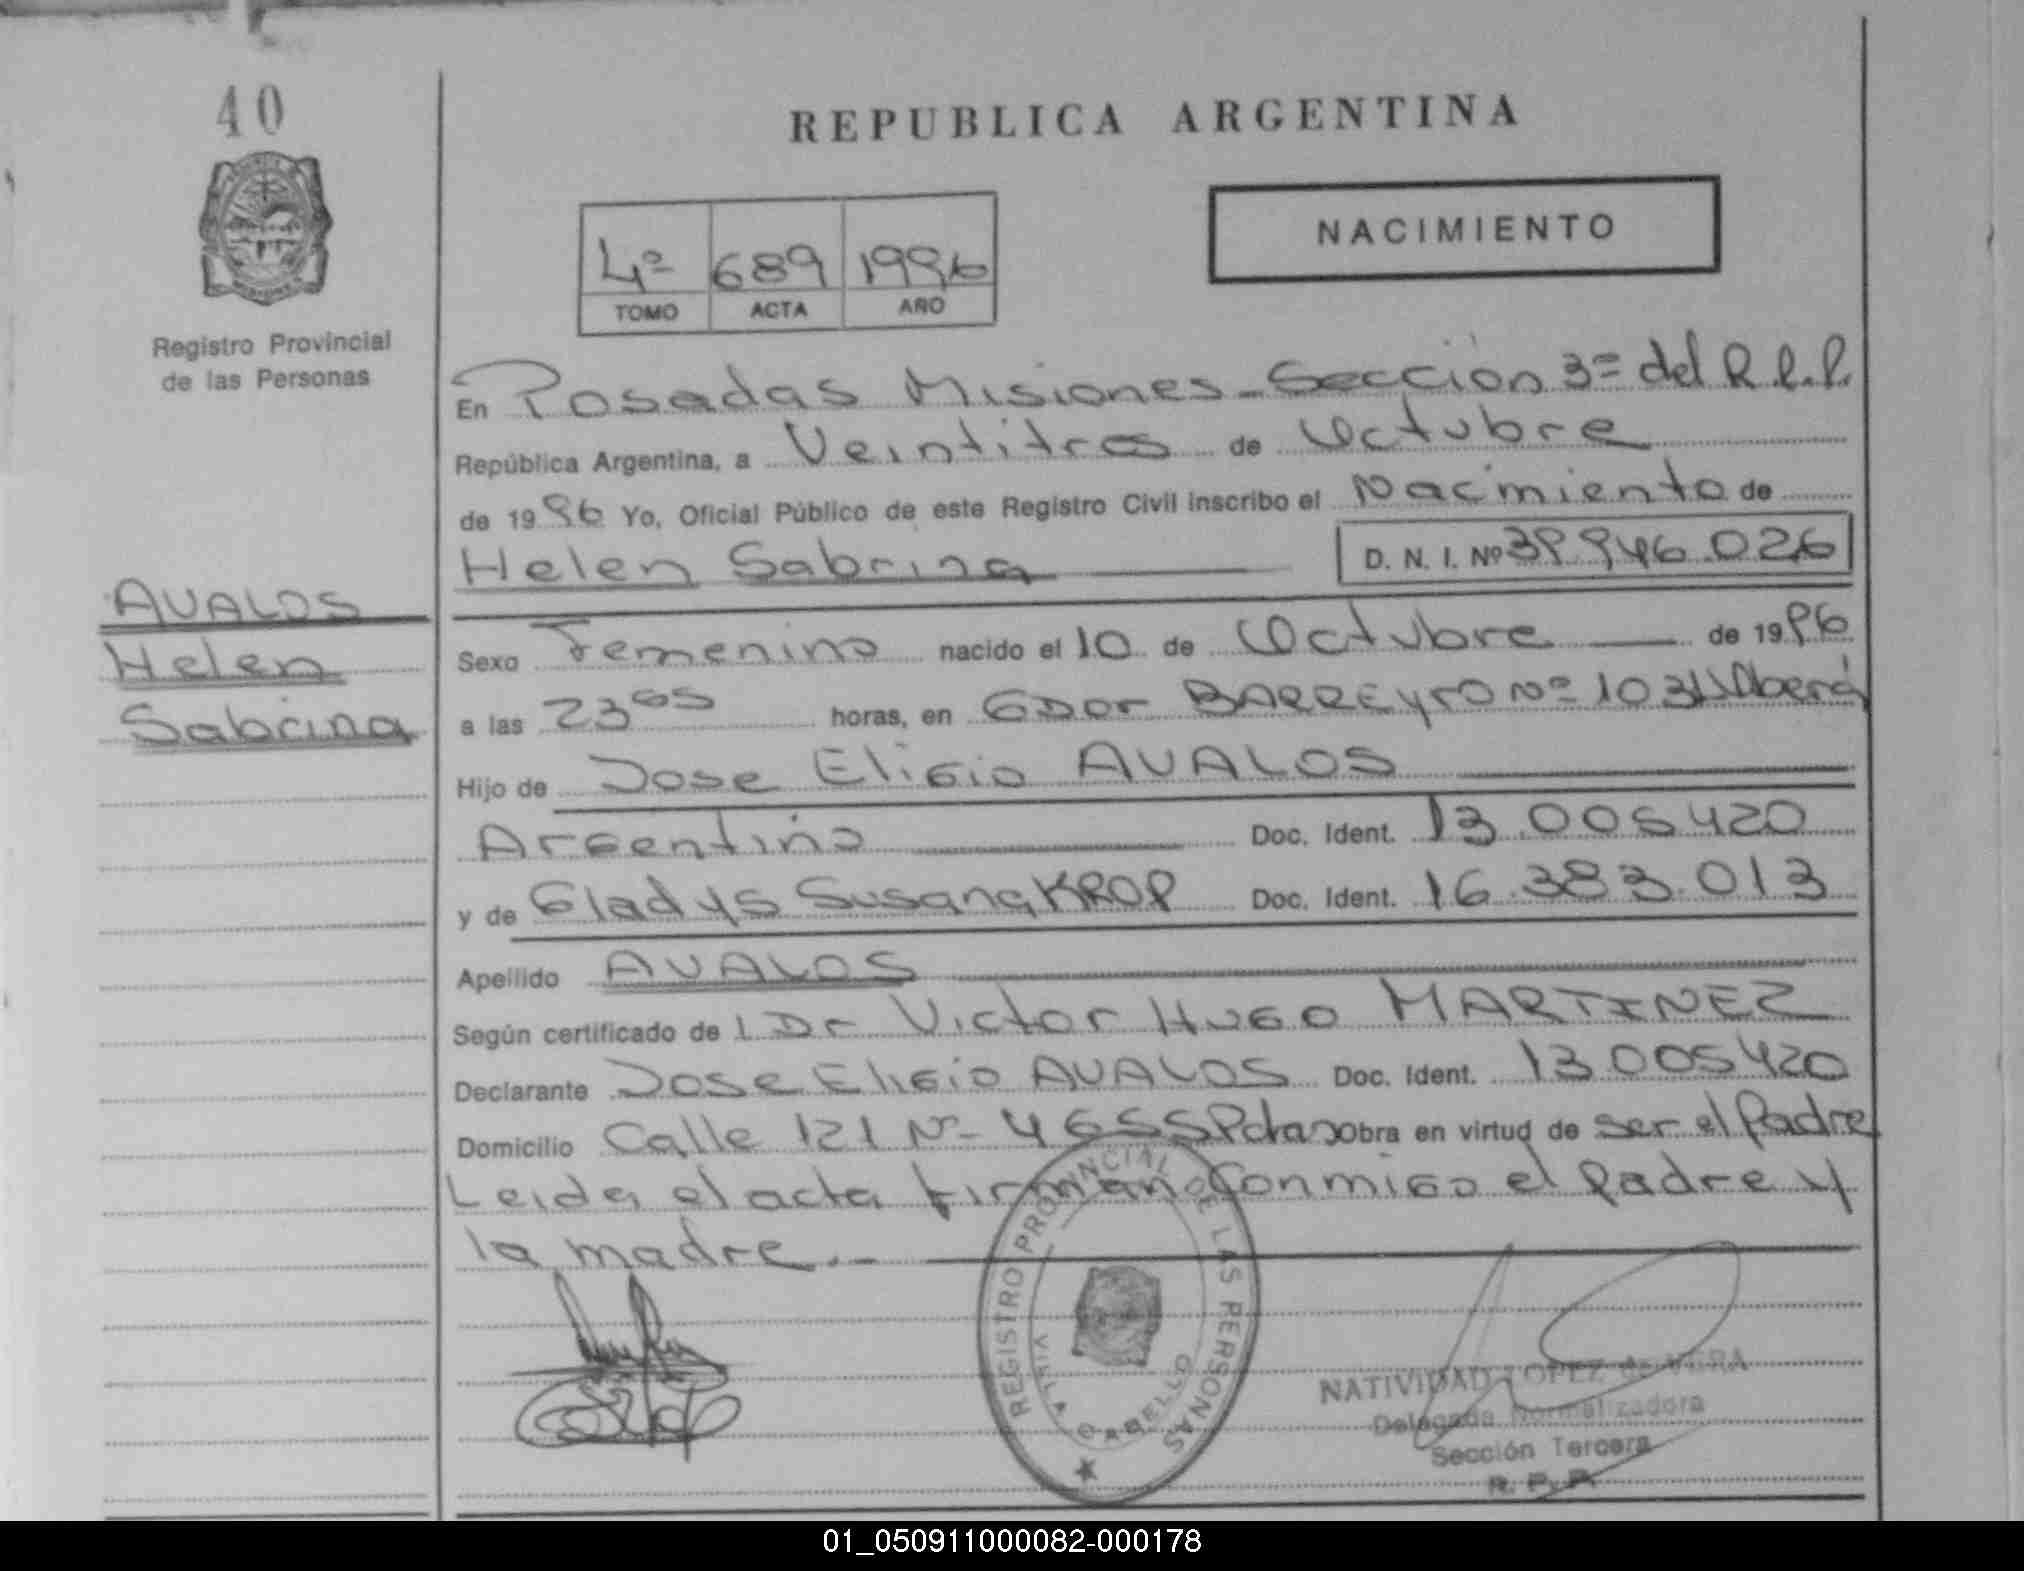 40
REPUBLICA ARGENTINA
NACIMIENTO
4º 689 1996
TOMO ACTA AÑO
Registro Provincial
de las Personas
En Posadas Misiones - Sección 3º del R.P.P.
República Argentina, a Veintitres de Octubre
de 1996 Yo, Oficial Público de este Registro Civil inscribo el Nacimiento de
Helen Sabrina D. N. I. Nº 39.946.026
AVALOS
Helen
Sabrina
Sexo Femenino nacido el 10 de Octubre de 1996
a las 23 05 horas, en GDor BARREyro Nº 1031 Oberá
Hijo de Jose Eligio AVALOS
Argentino Doc. Ident. 13.005420
y de Gladys Susana KROP Doc. Ident. 16.383.013
Apellido AVALOS
Según certificado de l Dr Victor Hugo MARTINEZ
Declarante Jose Eligio AVALOS Doc. Ident. 13.005420
Domicilio Calle 121 Nº 4655 Pdas Obra en virtud de ser el Padre
Leida el acta firman conmigo el padre y
la madre.-
REGISTRO PROVINCIAL DE LAS PERSONAS
CABELLO
NATIVIDAD LOPEZ de VERA
Delegada Normalizadora
Sección Tercera
R. P. P.
01_050911000082-000178